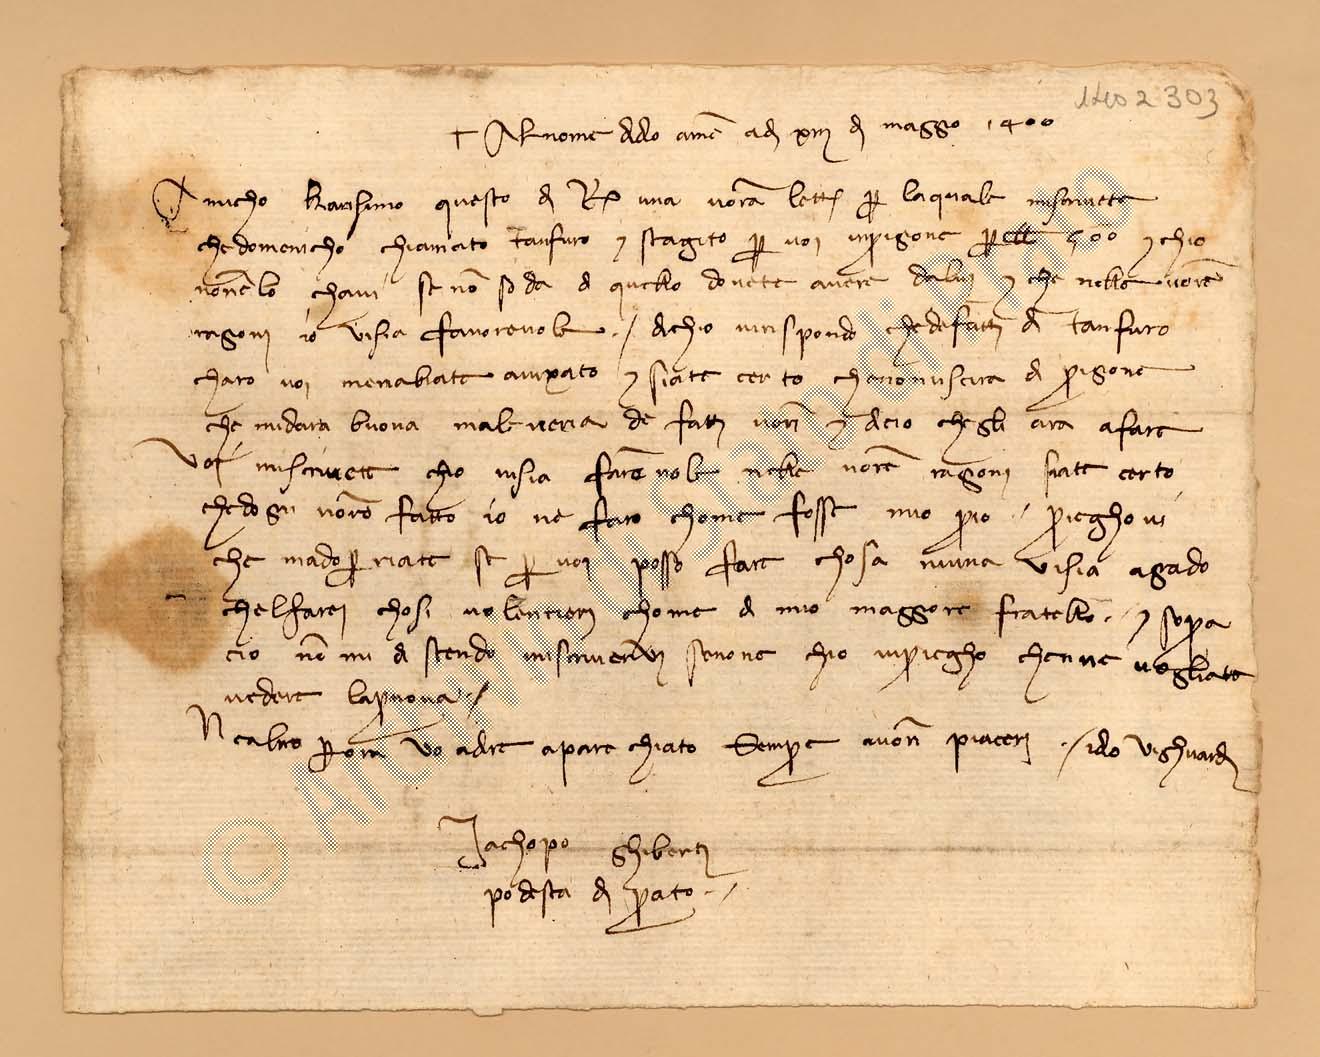 1402303
† Al nome di dio amē adj xiij dj maggo 1400
Amicho karisimo questo dj Rx una vorā letta p laquale miscrivete
che domenicho chiamato tanfuro è stagito p voi inprigone p 500 e chio
nonē lo chavi se nō so da di quello dovete avere da lui e che nelle vorē
ragoni io visia favorevole · / dichio virispondo che de fattj dj tanfuro
charo voi me nabiate avixato e siate certo che no nuscira dj prigone
che mi dara buona malveria de fattj vorj e dicio chegli ara a fare
Voi miscrivete chio visia farevole nelle vorē ragonj siate certo
che dognj vorō fatto io ne faro chome fosse mio prio · / prieghovi
che madopriate se p voi posso fare chosa niuna visia agado
chel farei chosi volentierj chome dj mio maggore fratello · / e sopra
cio nō mi distendo iniscrivervj senone chio vipriegho chenne vogliate
vedere lapruova · /
Nealtro p ora vo adire aparechiato sempre avorj piacerj · / idio vighuardj
Jachopo ghibertj
podesta dj prato · /
© Archivio di Stato di Prato